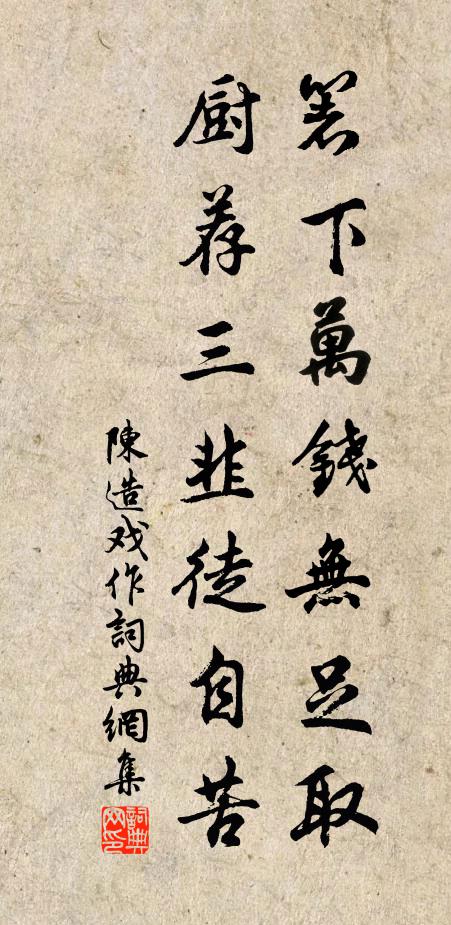 箸下萬錢無足取
厨荐三韭徒自苦
陳造戏作詞典網集
詞典網印